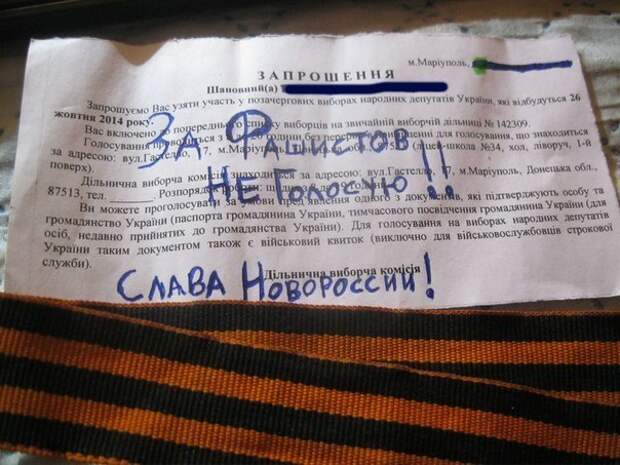 м.Маріуполь,
ЗАПРОШЕННЯ
Шановний(а)
Запрошуємо Вас узяти участь у позачергових виборах народних депутатів України, які відбудуться 26
жовтня 2014 року.
Вас включено до попереднього списку виборців на звичайній виборчій дільниці № 142309.
Голосування проводиться з години без перерви для голосування, що знаходиться
за адресою: вул.Гастелло, 17, м.Маріуполь №34, хол, ліворуч, 1-й
поверх).
Дільнична виборча комісія знаходиться за адресою: вул.Гастелло, 17, м.Маріуполь, Донецька обл.,
87513, тел. Розпорядок роботи:
Ви можете проголосувати за умови пред'явлення одного з документів, які підтверджують особу та
громадянство України (паспорта громадянина України, тимчасового посвідчення громадянина України (для
осіб, недавно прийнятих до громадянства України). Для голосування на виборах народних депутатів
України таким документом також є військовий квиток (виключно для військовослужбовців строкової
служби).
Дільнична виборча комісія
За Фашистов
не голосую!!
Слава Новороссии!